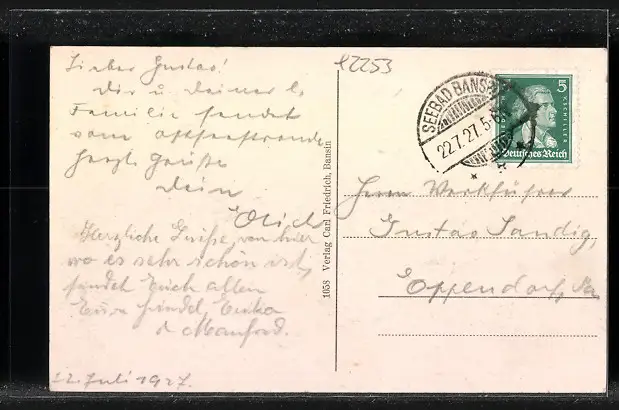 42253
Lieber Gustav!
Dir u Deiner l.
Familie sendet
vom Ostseestrande
herzl Grüße
Dein
Erich
Herzliche Grüße, von hier
wo es sehr schön ist,
sendet Euch allen
Eure Friedel, Erika
u Manfred.
22. Juli 1927.
1058 Verlag Carl Friedrich, Bansin
SEEBAD BANSIN
22.7.27.5-6
5
F. v. SCHILLER
Deutsches Reich
Herrn Werkführer
Gustav Sandig,
Eppendorf, Sa